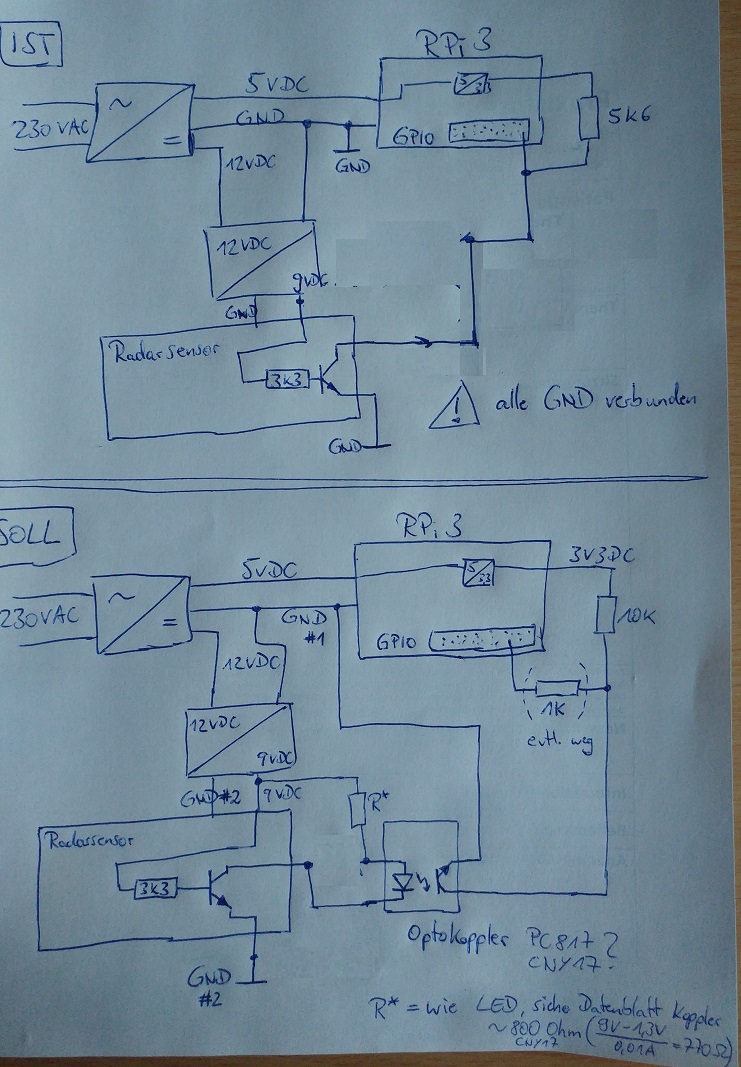 IST
RPi 3
5VDC
5
3,3
230 VAC
~
=
GND
GPIO
5K6
12VDC
GND
12VDC
9VDC
GND
Radarsensor
3K3
GND
! alle GND verbunden
SOLL
RPi 3
5VDC
5
3,3
3V3DC
230VAC
~
=
GND
#1
GPIO
10K
12VDC
1K
evtl. weg
12VDC
9VDC
GND#2
9VDC
R*
Radarsensor
3K3
Optokoppler PC817?
CNY17?
GND
#2
R* = wie LED, siehe Datenblatt Koppler
~ 800 Ohm (9V-1,3V / 0,01A = 770Ω)
CNY17